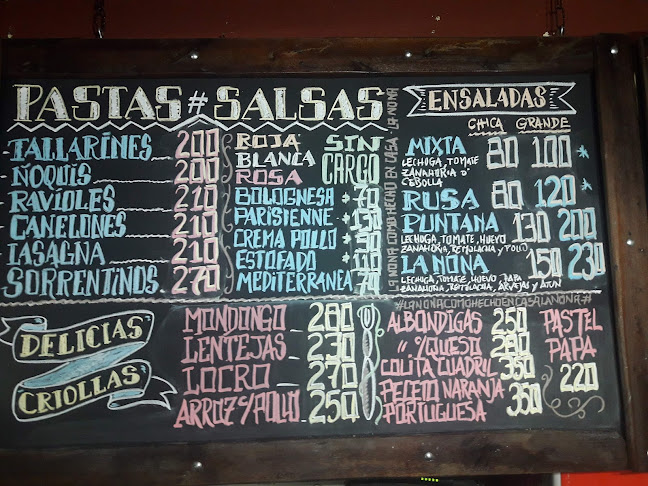 PASTAS # SALSAS
TALLARINES 200
ÑOQUIS 200
RAVIOLES 210
CANELONES 210
LASAGNA 210
SORRENTINOS 270
ROJA
BLANCA
ROSA
SIN CARGO
BOLOGNESA 70
PARISIENNE
CREMA POLLO
ESTOFADO
MEDITERRANEA 70
LA NONA COMO HECHO EN CASA LA NONA
ENSALADAS
CHICA GRANDE
MIXTA 80 100
LECHUGA, TOMATE
ZANAHORIA O
CEBOLLA
RUSA 80 120
PUNTANA 130 200
LECHUGA, TOMATE, HUEVO
ZANAHORIA, REMOLACHA y POLLO
LA NONA 150 230
LECHUGA, TOMATE, HUEVO, PAPA
ZANAHORIA, REMOLACHA, ARVEJAS y ATUN
#LANONACOMOHECHOENCASALANONA#
DELICIAS
CRIOLLAS
MONDONGO 280
LENTEJAS 230
LOCRO 270
ARROZ C/POLLO 250
ALBONDIGAS 250
" C/QUESO 280
COLITA CUADRIL 350
PECETO NARANJA
PORTUGUESA 350
PASTEL
PAPA
220